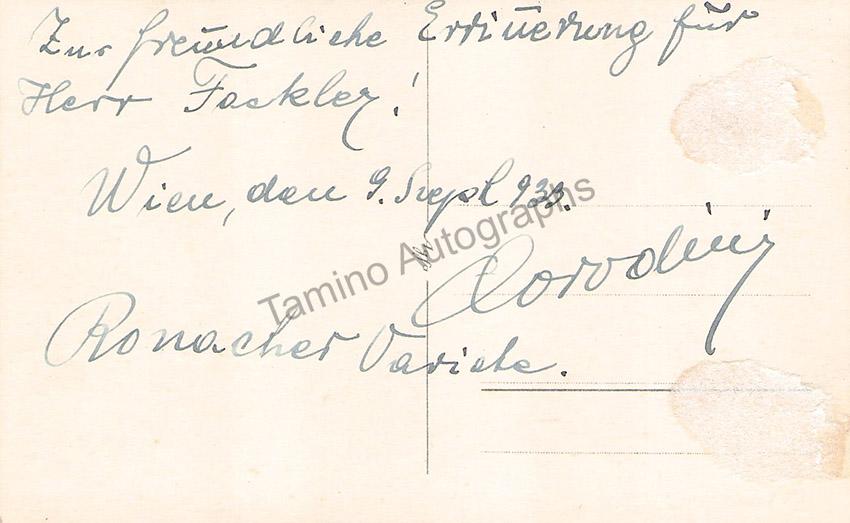 Zur freundliche Erinnerung für
Herr Fackler!
Wien, den 9. Sept 933.
Tamino Autographs
Ronacher Variete.